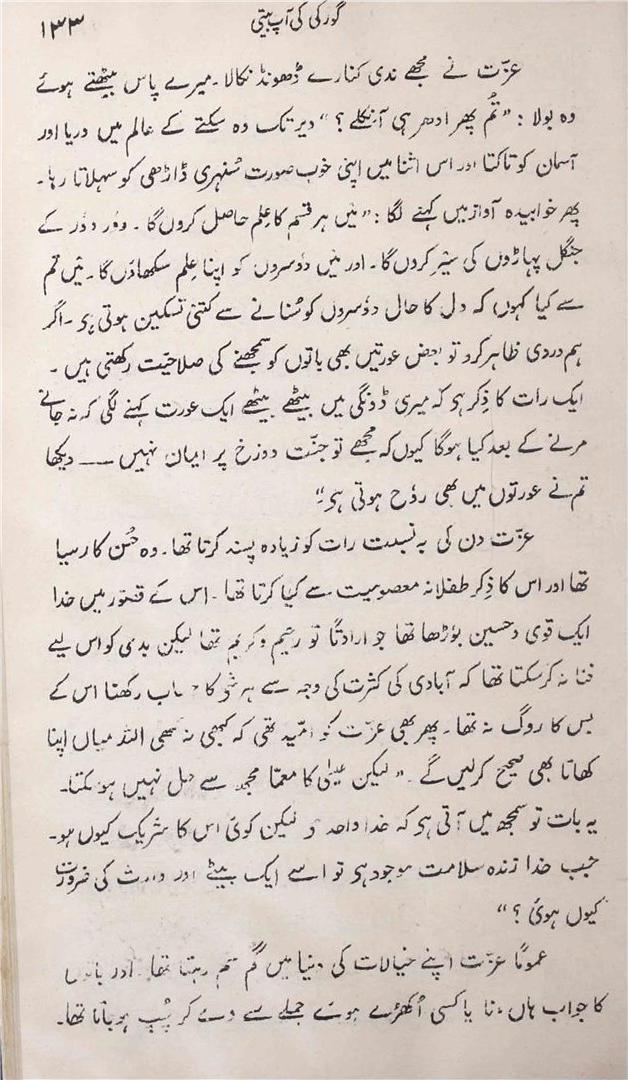 گورکی کی آپ بیتی
۱۳۳
عزّت نے مجھے ندی کنارے ڈھونڈ نکالا۔ میرے پاس بیٹھتے ہوئے
وہ بولا : "تُم پھر ادھر ہی آنکلے ؟" دیر تک وہ سکتے کے عالم میں دریا اور
آسمان کو تاکتا اور اس اثنا میں اپنی خوب صورت سُنہری ڈاڑھی کو سہلاتا رہا۔
پھر خوابیدہ آواز میں کہنے لگا : "میں ہر قسم کا علم حاصل کروں گا ۔ دور دور کے
جنگل پہاڑوں کی سَیر کروں گا۔ اور میں دوسروں کو اپنا علم سکھاؤں گا۔ میں تم
سے کیا کہوں کہ دل کا حال دوسروں کو سُنانے سے کتنی تسکین ہوتی ہی ۔ اگر
ہم دردی ظاہر کرو تو بعض عورتیں بھی باتوں کو سمجھنے کی صلاحیّت رکھتی ہیں ۔
ایک رات کا ذِکر ہی کہ میری ڈونگی میں بیٹھے بیٹھے ایک عورت کہنے لگی کہ نہ جانے
مرنے کے بعد کیا ہوگا کیوں کہ مجھے تو جنّت دوزخ پر ایمان نہیں —— دیکھا
تم نے عورتوں میں بھی روٗح ہوتی ہی"
عزّت دن کی بہ نسبت رات کو زیادہ پسند کرتا تھا۔ وہ حُسن کا رسیا
تھا اور اس کا ذِکر طفلانہ معصومیت سے کیا کرتا تھا ۔ اس کے تصّور میں خدا
ایک قوی و حسین بوڑھا تھا جو ارادتاً تو رحیم و کریم تھا لیکن بدی کو اس لیے
فنا نہ کرسکتا تھا کہ آبادی کی کثرت کی وجہ سے ہر شو کا حساب رکھنا اس کے
بس کا روگ نہ تھا۔ پھر بھی عزّت کو اُمید تھی کہ کبھی نہ کبھی اللہ میاں اپنا
کھاتا بھی صحیح کرلیں گے ۔ "لیکن عیسٰی کا معمّا مجھ سے حل نہیں ہو سکتا۔
یہ بات تو سمجھ میں آتی ہی کہ خدا واحد ہی لیکن کوئی اس کا شریک کیوں ہو۔
جب خدا زندہ سلامت موجود ہی تو اسے ایک بیٹے اور وارث کی ضرورت
کیوں ہوئی ؟"
عمومًا عزّت اپنے خیالات کی دنیا میں گُم سُم رہتا تھا اور باتوں
کا جواب ہاں نا یا کسی اُکھڑے ہوئے جملے سے دے کر چُپ ہوجاتا تھا۔